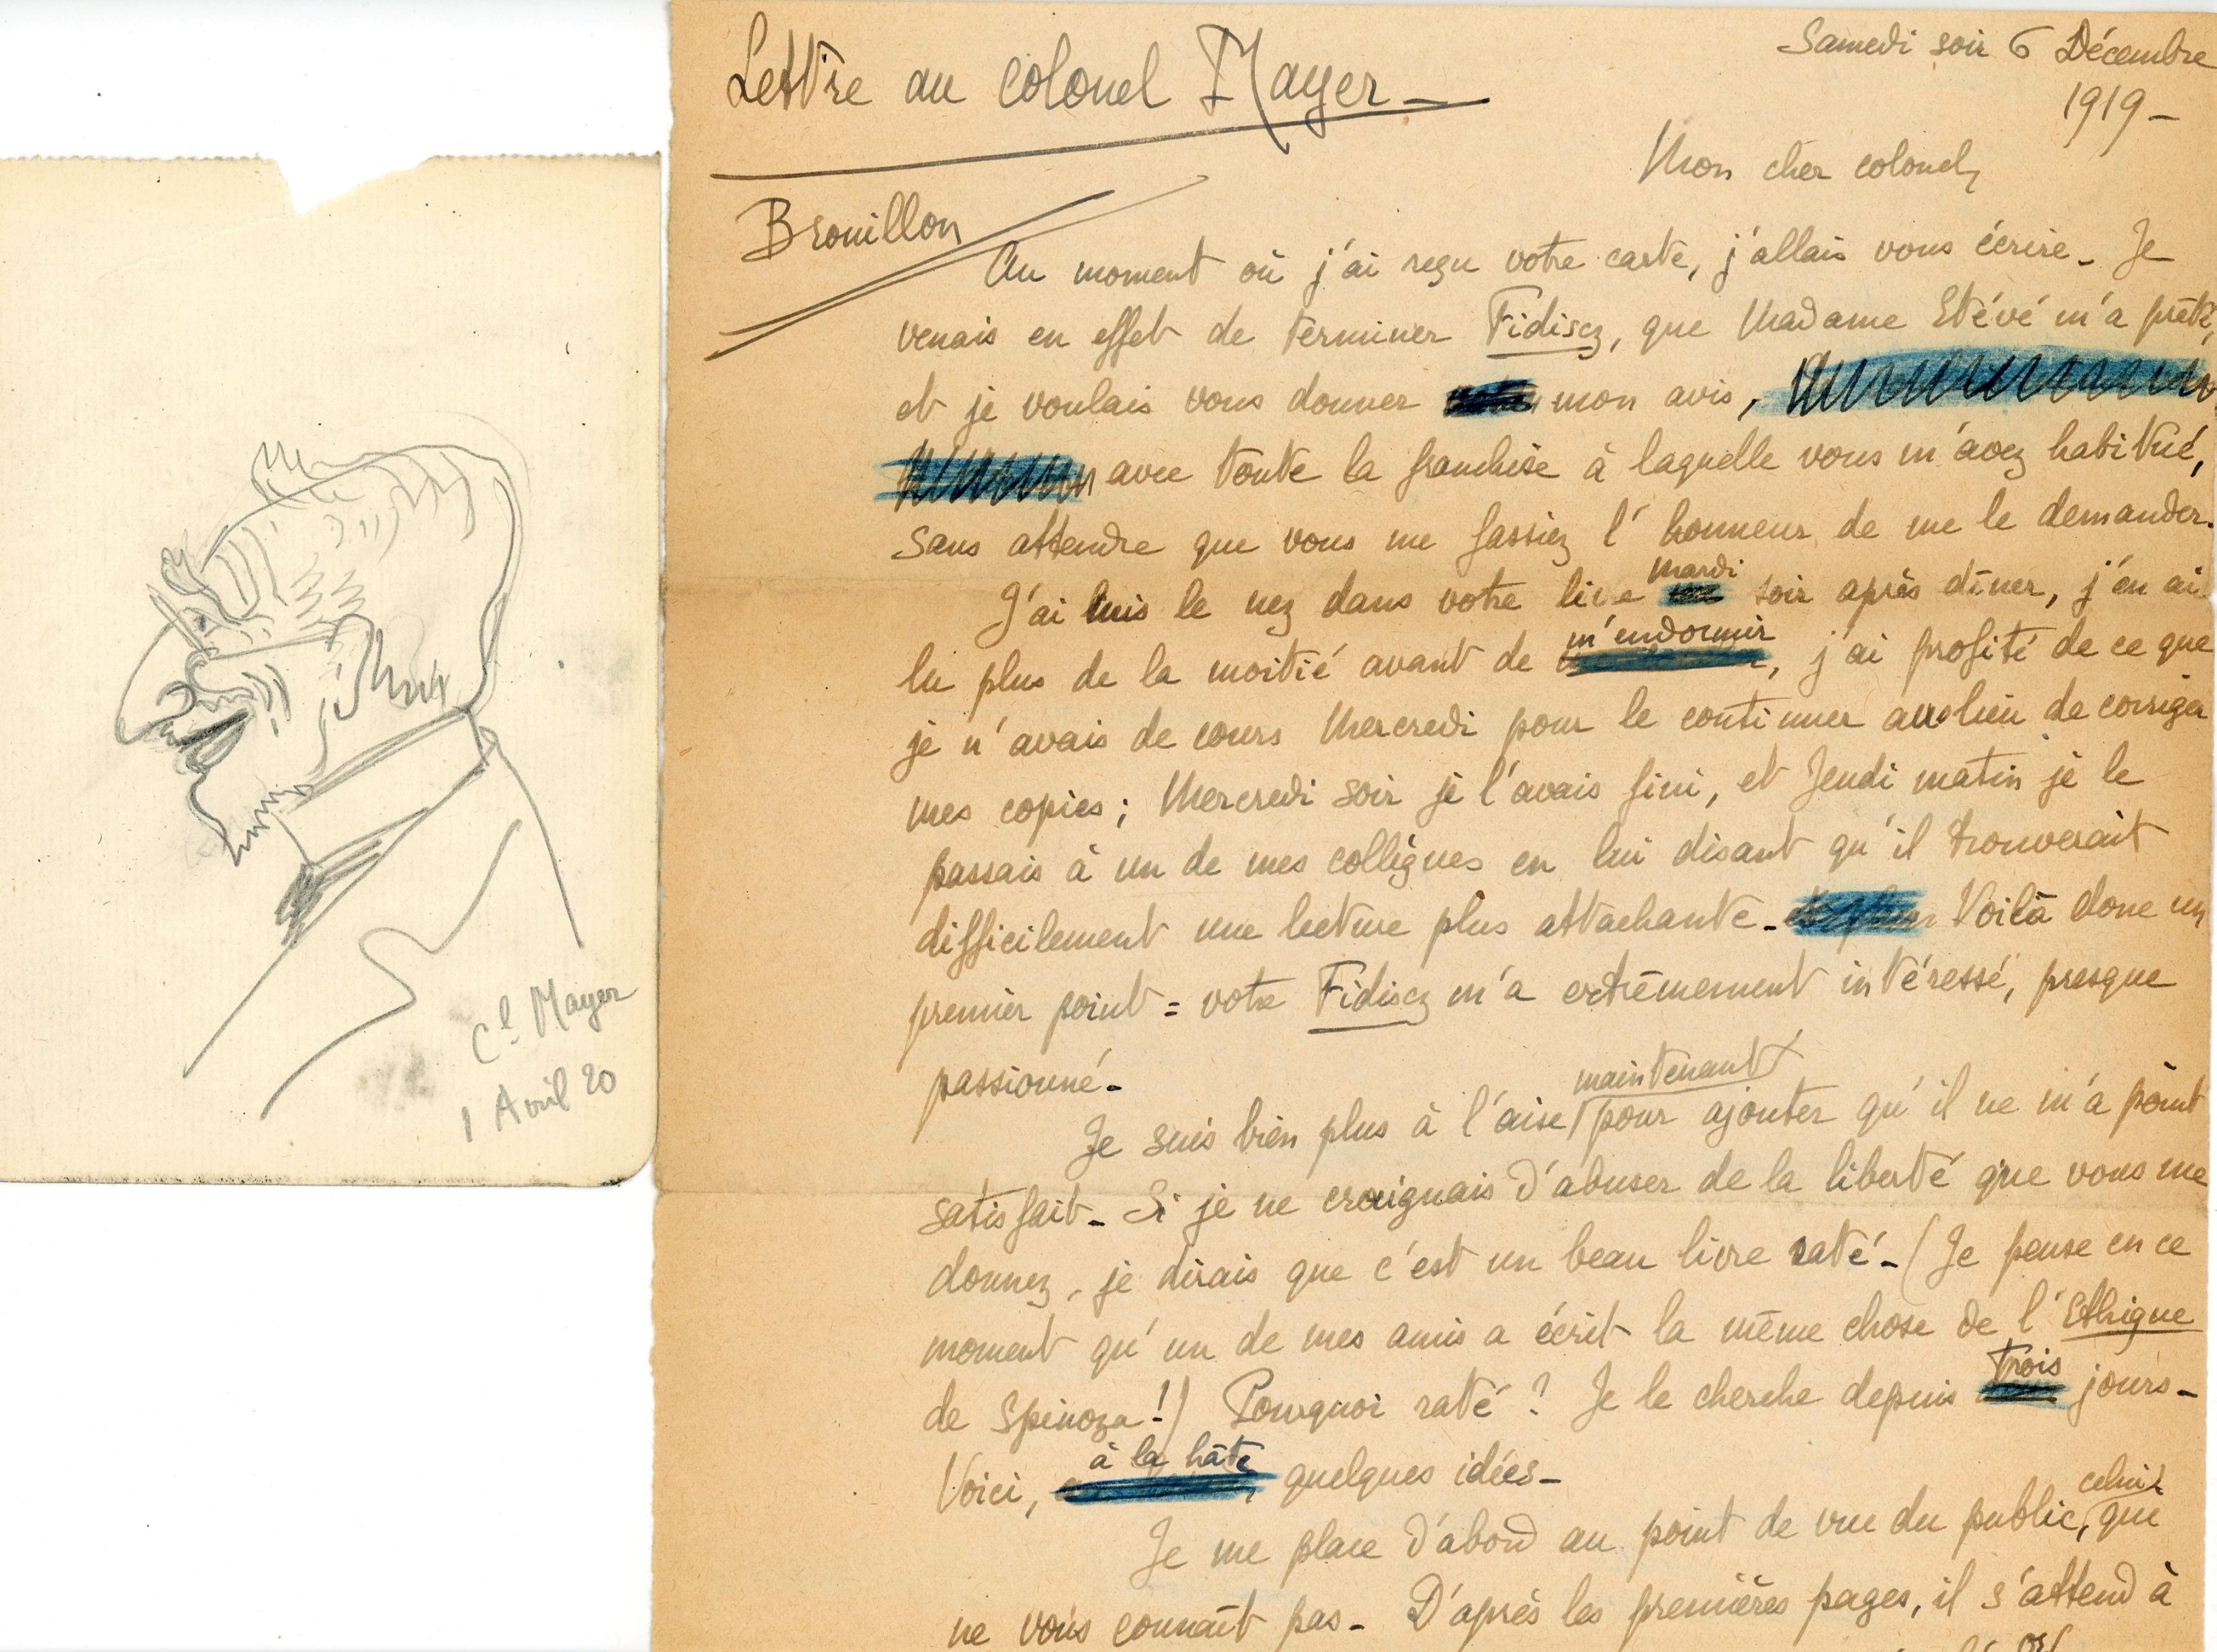 Cl Mayer
1 Avril 20
Lettre au colonel Mayer_
Brouillon
Samedi soir 6 Décembre
1919_
Mon cher colonel,
Au moment où j'ai reçu votre carte, j'allais vous écrire_ Je
venais en effet de terminer Fidiscz, que Madame Etévé m'a prêté,
et je voulais vous donner mon avis,
avec toute la franchise à laquelle vous m'avez habitué,
sans attendre que vous me fassiez l'honneur de me le demander.
J'ai mis le nez dans votre livre mardi soir après dîner, j'en ai
lu plus de la moitié avant de m'endormir, j'ai profité de ce que
je n'avais de cours Mercredi pour le continuer au lieu de corriger
mes copies ; Mercredi soir je l'avais fini, et Jeudi matin je le
passais à un de mes collègues en lui disant qu'il trouverait
difficilement une lecture plus attachante_ Voilà donc un
premier point = votre Fidiscz m'a extrêmement intéressé, presque
passionné_
Je suis bien plus à l'aise maintenant pour ajouter qu'il ne m'a point
satisfait_ Si je ne craignais d'abuser de la liberté que vous me
donnez, je dirais que c'est un beau livre raté_ (Je pense en ce
moment qu'un de mes amis a écrit la même chose de l'Ethique
de Spinoza !) Pourquoi raté ? Je le cherche depuis trois jours_
Voici, à la hâte, quelques idées_
Je me place d'abord au point de vue du public, celui que
ne vous connaît pas_ D'après les premières pages, il s'attend à